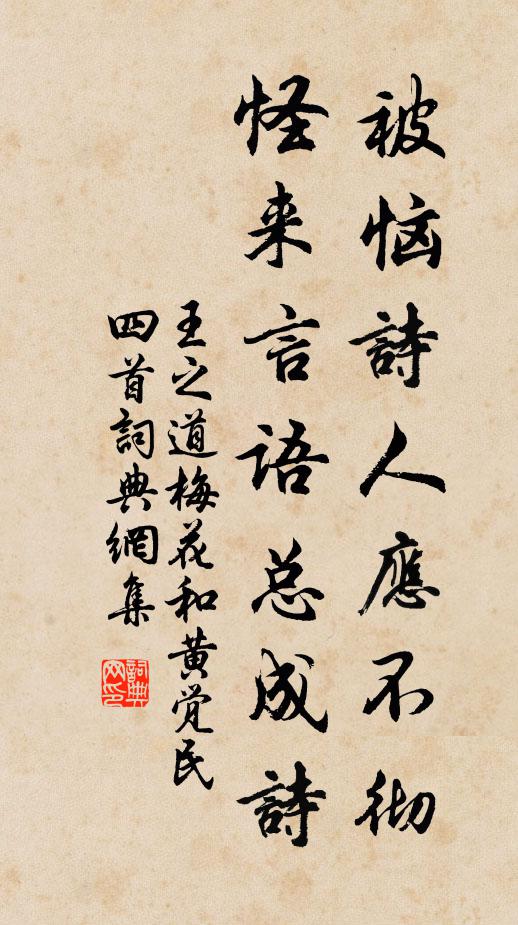 被恼詩人應不彻
怪来言语总成詩
王之道梅花和黄觉民
四首詞典網集
詞典网印